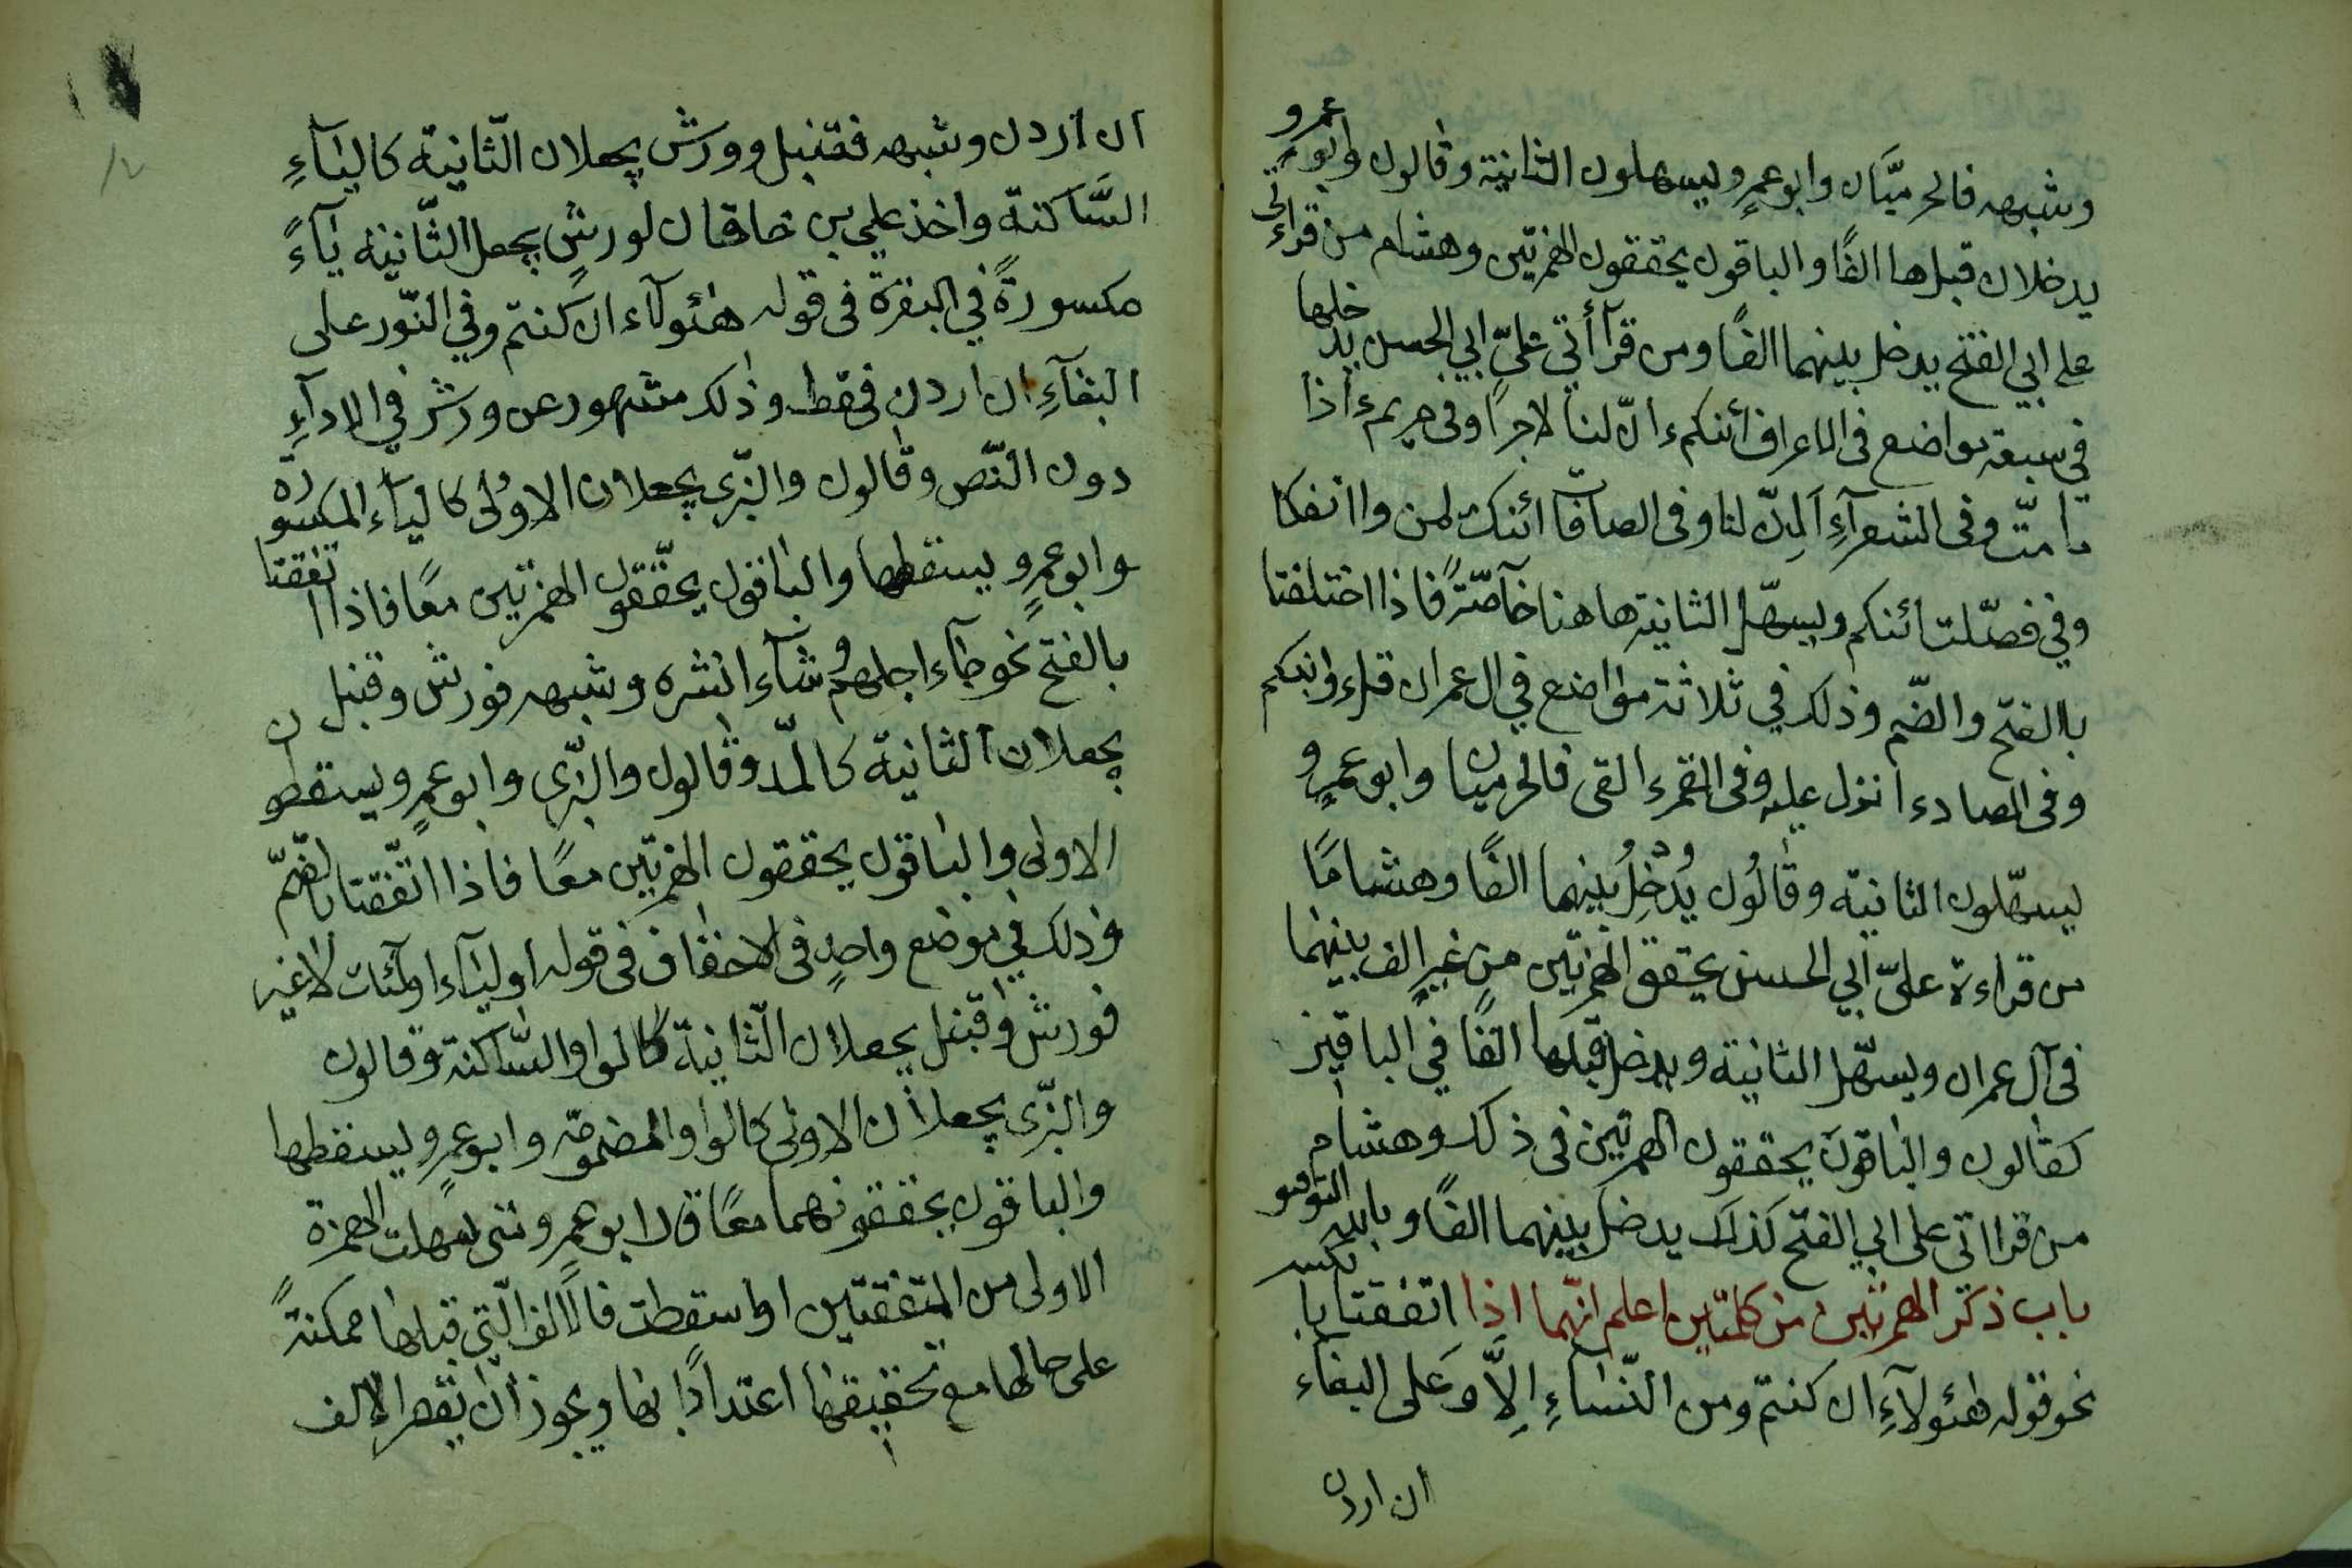 وشبهه فالحرميّان وابو عمرٍو يسهلون الثانية وقالون وابو عمرو
يدخلان قبلها الفًا والباقون يحققون الهمزتين وهشام من قراءتى
على ابي الفتح يدخل بينهما الفًا ومن قرآأتي علىّ ابي الحسن يدخلها
في سبعة مواضع فى الاعراف ائنكم ءانّ لنا لاجرًا وفى مريم ءاذا
ما متّ وفى الشعرآءِ اَئِنّ لنا وفى الصآفّآت ائنك لمن وا انفكا
وفي فصّلت ائنكم ويسهّل الثانية هاهنا خآصّةً فاذا اختلفتا
باالفتح والضّم وذلك في ثلاثة مواضع في ال عمران قل اؤنبئكم
وفى الصاد ءانزل عليه وفى القمر ءالقى فالحرميان وابو عمرٍو
يسهّلون الثانية وقالُون يُدْخِلُ بينهما الفًا وهشامًا
من قراءة علىّ ابي الحسن يحقق الهمزتين من غيرِ الف بينهما
فى آل عمران ويسهّل الثانية ويدخل قبلها الفًا في الباقيين
كقالون والباقون يحققون الهمزتين فى ذلك وهشام
من قرااتى على ابي الفتح كذلك يدخل بينهما الفًا وبالله التوفيق
باب ذكر الهمزتين من كلمتين اعلم انّهما اذا اتفقتا بالكسر
نحو قوله هٰئولآءِ ان كنتم ومن النّساءِ اِلاَّ وَعلى البغاء
ان اردن
ان اردن وشبهه فقنبل وورش يجعلان الثّانية كاليآءِ
السَّاكنة واخذ علي بن خاقان لورشٍ بجعل الثّانية يآءً
مكسورةً في البقرة فى قوله هٰئولآء ان كنتم وفي النّور على
البغآءِ ان اردن فقط وذلك مشهور عن ورش في الادآءِ
دون النّص وقالون والبزّى يجعلان الاوُلى كاليآء المكسورة
وابو عمرٍو يسقطها والباقون يحقّقون الهمزتين معًا فاذا اتفقتا
بالفتح نحو جآء اجلهم وشآء انشره وشبهه فورش وقنبل
يجعلان الثانية كالمدّ وقالون والبزّى وابو عمرٍو يسقطون
الاولى والباقون يحققون الهمزتين معًا فاذا اتّفقتا بالضّمّ
وذلك في موضع واحدٍ فى الاحقاف فى قوله اوليآء اولٰئك لاغير
فورش وقنبل يجعلان الثّانية كالواو السّاكنة وقالون
والبزّى يجعلان الاولى كالواو المضمومة وابو عمرٍو يسقطها
والباقون يحققونهما معًا قال ابو عمرٍو متى سهلت الهمزة
الاولى من المتفقتين او اسقطت فالالف الّتى قبلها ممكنةً
على حالها مع تحقيقها اعتدادًا بها ويجوز ان يقصر الالف